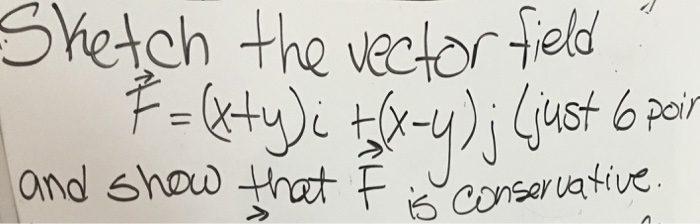 Sketch the vector field
F⃗ = (x+y)i + (x-y)j (just 6 poin
and show that F⃗ is conservative.